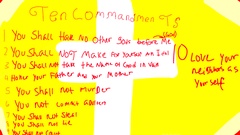 Ten Commandments
1 You Shall Have No other Gods before Me
2 You Shall NOT Make For Yourself An Idol
3 You Shall Not take the Name of God in Vain
4 Honor your Father and your Mother
5 You Shall not Murder
6 You not commit
7 You Shall not Steal
You Shall not Lie
You Shall not
10 Love your
neighbors as
yourself